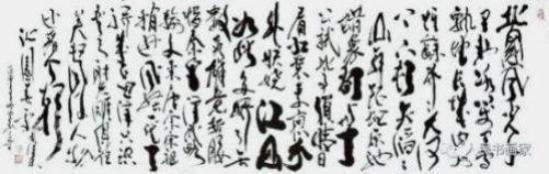 北国风光千
里冰封万里雪
飘望长城内外
惟余莽莽大河
上下顿失滔滔
山舞银蛇原驰
蜡象欲与天
公试比高须晴日
看红装素裹分
外妖娆江山
如此多娇引无
数英雄竞折腰
惜秦皇汉武略
输文采唐宗宋祖
稍逊风骚一代天
骄成吉思汗只识
弯弓射大雕俱往
矣数风流人物
还看今朝
沁园春雪
书画家